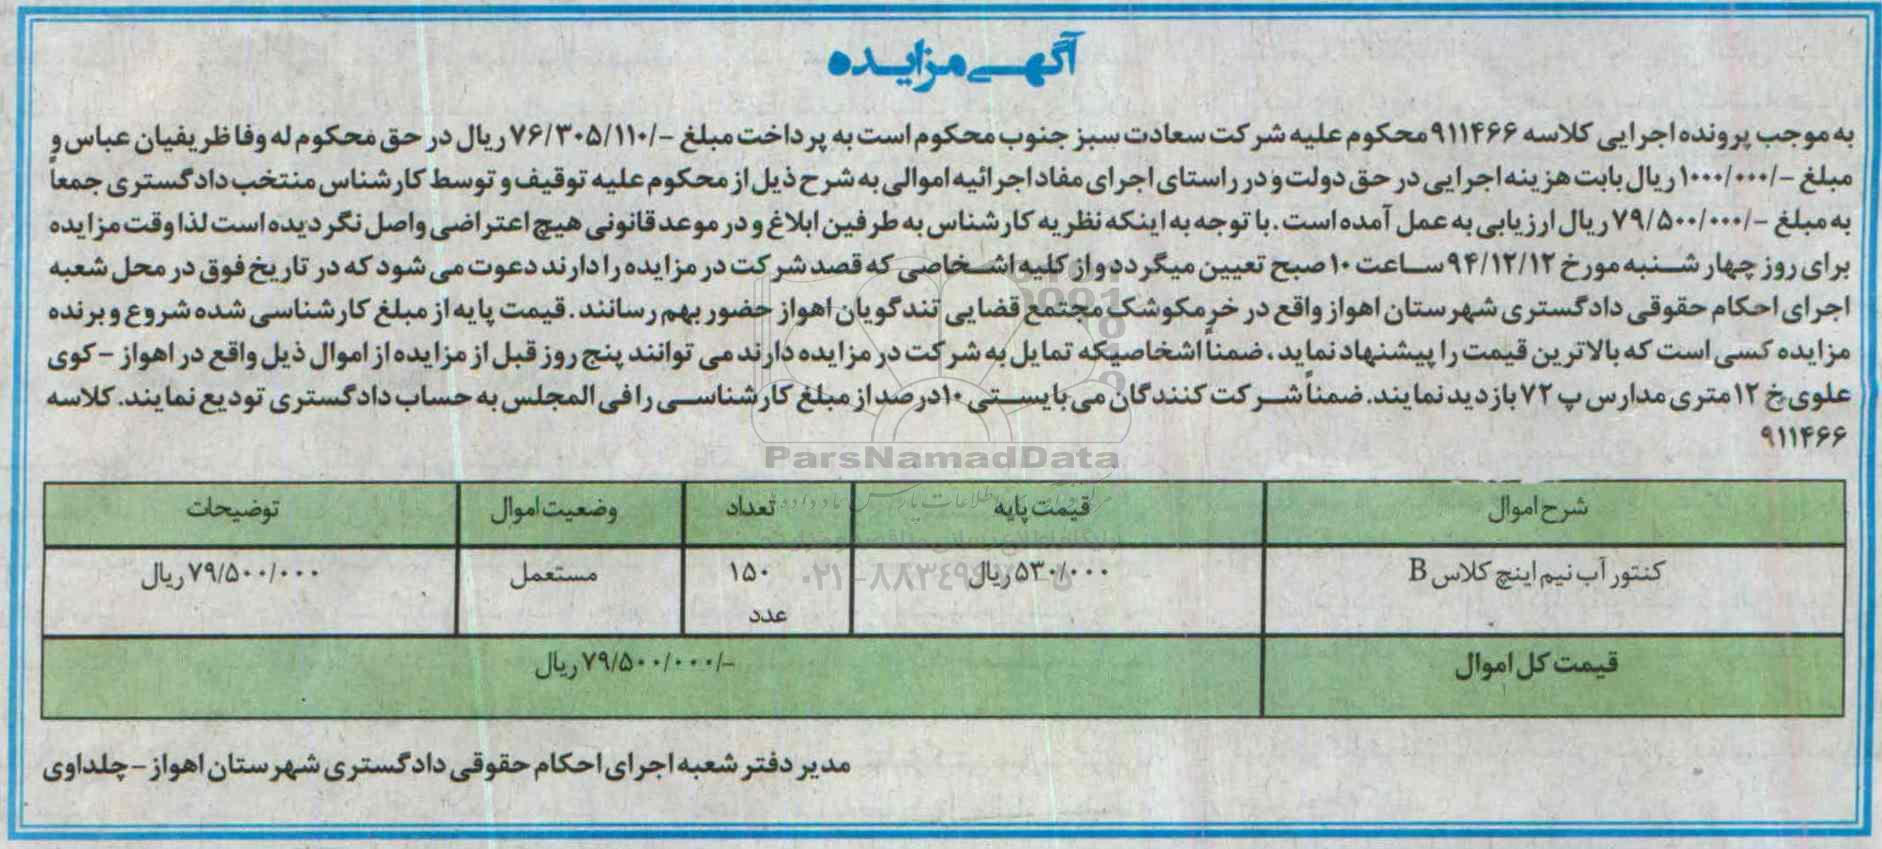 آگهی مزایده
به موجب پرونده اجرایی کلاسه ۹۱۱۴۶۶ محکوم علیه شرکت سعادت سبز جنوب محکوم است به پرداخت مبلغ -/۷۶/۳۰۵/۱۱۰ ریال در حق محکوم له وفا ظریفیان عباس و
مبلغ -/۱۰۰۰/۰۰۰ ریال بابت هزینه اجرایی در حق دولت و در راستای اجرای مفاد اجرائیه اموالی به شرح ذیل از محکوم علیه توقیف و توسط کارشناس منتخب دادگستری جمعاً
به مبلغ -/۷۹/۵۰۰/۰۰۰ ریال ارزیابی به عمل آمده است. با توجه به اینکه نظریه کارشناس به طرفین ابلاغ و در موعد قانونی هیچ اعتراضی واصل نگردیده است لذا وقت مزایده
برای روز چهار شنبه مورخ ۹۴/۱۲/۱۲ ساعت ۱۰ صبح تعیین میگردد و از کلیه اشخاصی که قصد شرکت در مزایده را دارند دعوت می شود که در تاریخ فوق در محل شعبه
اجرای احکام حقوقی دادگستری شهرستان اهواز واقع در خرمکوشک مجتمع قضایی تندگویان اهواز حضور بهم رسانند. قیمت پایه از مبلغ کارشناسی شده شروع و برنده
مزایده کسی است که بالاترین قیمت را پیشنهاد نماید، ضمناً اشخاصیکه تمایل به شرکت در مزایده دارند می توانند پنج روز قبل از مزایده از اموال ذیل واقع در اهواز - کوی
علوی خ ۱۲ متری مدارس پ ۷۲ بازدید نمایند. ضمناً شرکت کنندگان می بایستی ۱۰ درصد از مبلغ کارشناسی را فی المجلس به حساب دادگستری تودیع نمایند. کلاسه
۹۱۱۴۶۶
ParsNamadData
شرح اموال قیمت پایه تعداد وضعیت اموال توضیحات
کنتور آب نیم اینچ کلاس B ۵۳۰/۰۰۰ ریال ۱۵۰ مستعمل ۷۹/۵۰۰/۰۰۰ ریال
عدد
قیمت کل اموال -/۷۹/۵۰۰/۰۰۰ ریال
مدیر دفتر شعبه اجرای احکام حقوقی دادگستری شهرستان اهواز - چلداوی